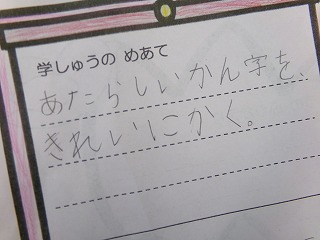 学しゅうの めあて
あたらしいかん字を、
きれいにかく。